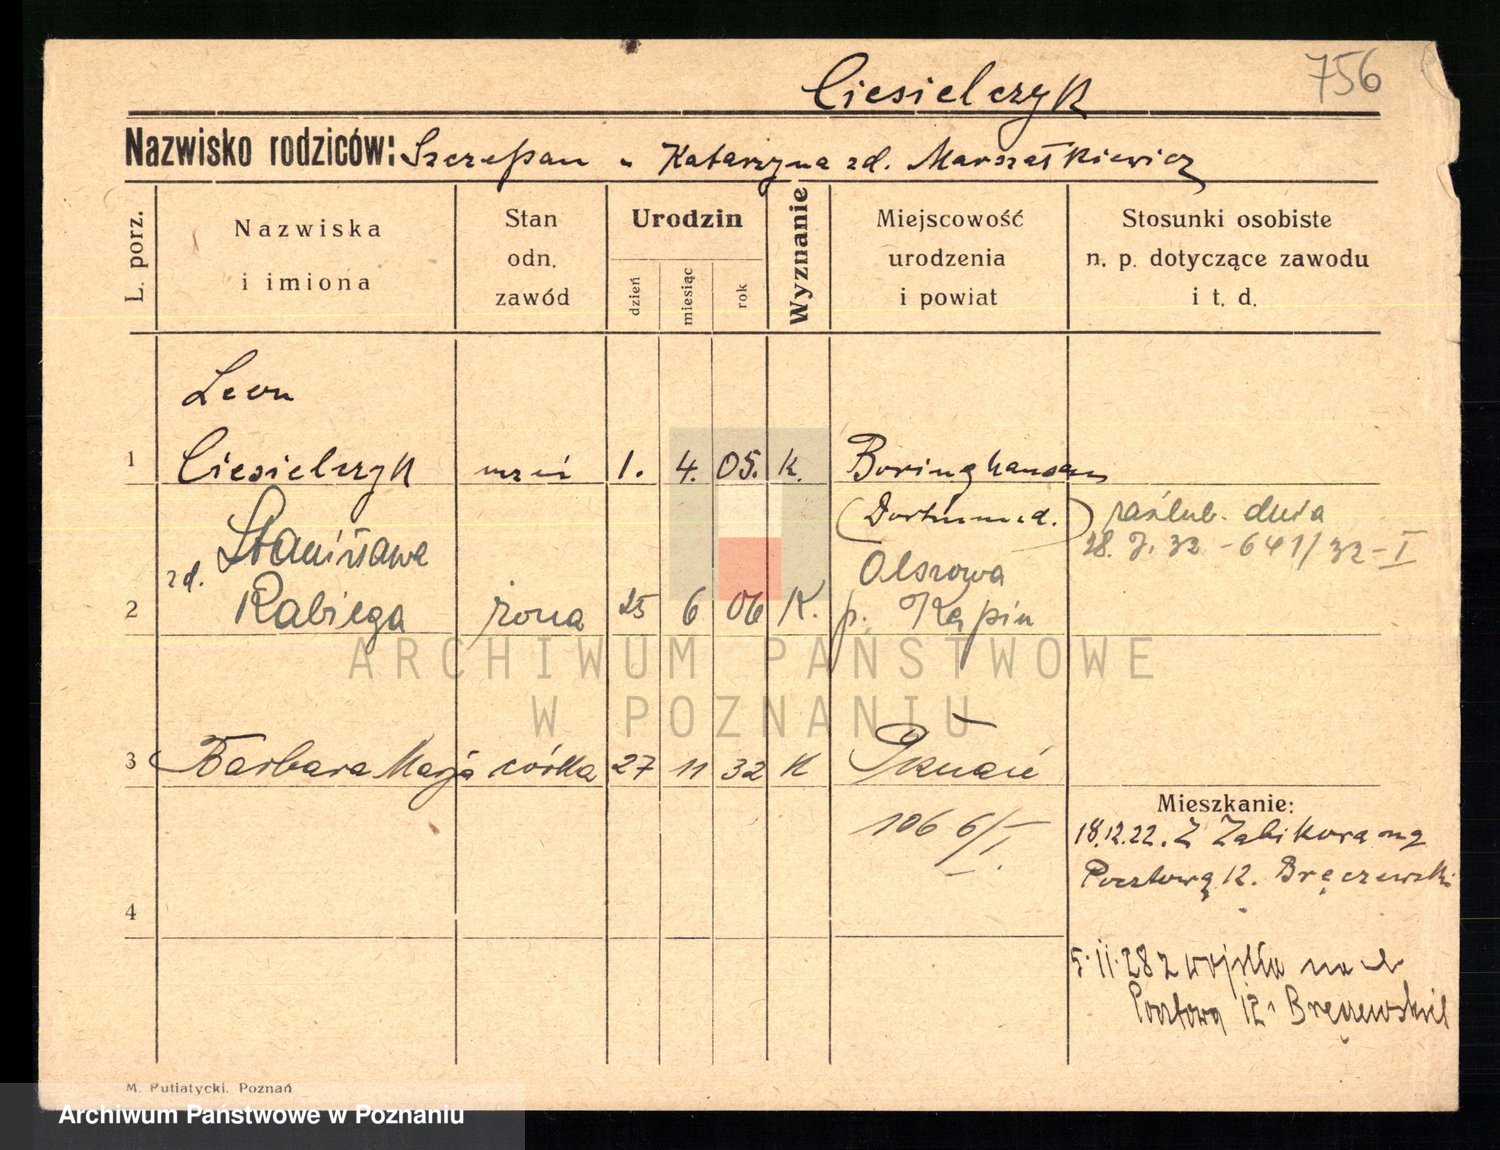 Ciesielczyk
756
Nazwisko rodziców: Szczepan u Katarzyna zd. Marszałkiewicz
L. porz.
Nazwiska
i imiona
Stan
odn.
zawód
Urodzin
dzień
miesiąc
rok
Wyznanie
Miejscowość
urodzenia
i powiat
Stosunki osobiste
n. p. dotyczące zawodu
i t. d.
Leon
1 Ciesielczyk 1. 4. 05. k. Boringhausen
(Dortmund.) zaślub. dnia
28. 7. 32 - 641/32 - I
Stanisława Olszowa
2 zd. Rabiega żona 25 6 06 K. p. Kępin
3 Barbara Marja córka 27 11 32 K Poznań
106 6/I.
Mieszkanie:
18.12.22. Z Żabikowa na
Pocztową 12. Bręczewski
4
5.11.28 z wojska na
Pocztową 12 Bręczewski
M. Putiatycki. Poznań
ARCHIWUM PAŃSTWOWE
W POZNANIU
Archiwum Państwowe w Poznaniu